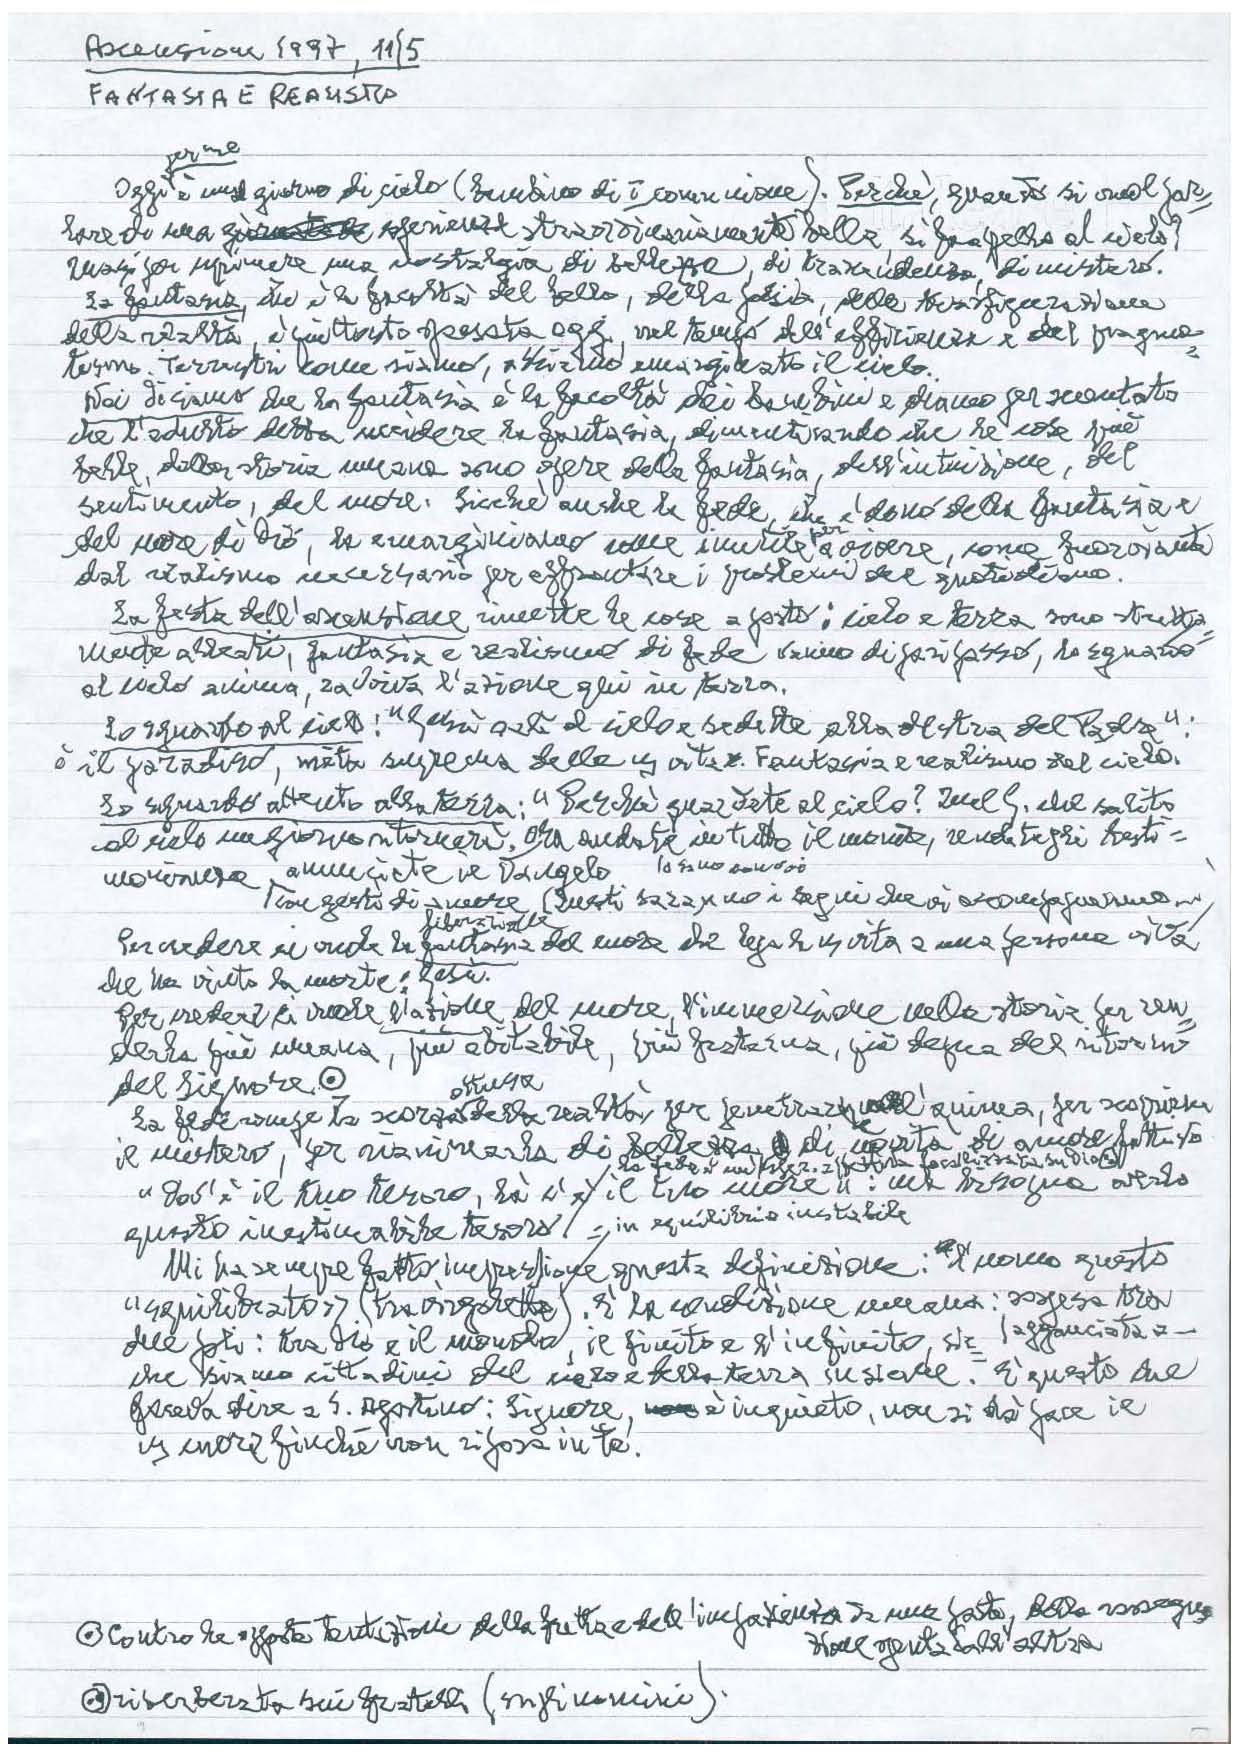 Ascensione 1997, 11/5
FANTASIA E REALISMO
per me
Oggi è un giorno di cielo (bambino di I comunione). Perché, quando si vuol par=
lare di una esperienza straordinariamente bella, si fa appello al cielo?
Magari per esprimere una nostalgia di bellezza, di trascendenza, di mistero.
La fantasia, che è la facoltà del bello, della poesia, della trasfigurazione
della realtà, è piuttosto spesata oggi, nel tempo dell'efficienza e del pragma=
tismo. Terrestri come siamo, abbiamo emarginato il cielo.
Noi diciamo che la fantasia è la facoltà dei bambini e diamo per scontato
che l'adulto debba uccidere la fantasia, dimenticando che le cose più
belle della storia umana sono opere della fantasia, dell'intuizione, del
sentimento, del cuore. Sicché anche la fede, che è dono della fantasia e
del cuore di Dio, la emarginiamo come inutile per vivere, come fuorviante
dal realismo necessario per affrontare i problemi del quotidiano.
La festa dell'ascensione rimette le cose a posto: cielo e terra sono stretta=
mente alleati, fantasia e realismo di fede vanno di pari passo, lo sguardo
al cielo anima, ravviva l'azione qui in terra.
Lo sguardo al cielo: "Gesù ascese al cielo e siede alla destra del Padre":
è il paradiso, mèta suprema della ns vita. Fantasia e realismo del cielo.
Lo sguardo attento alla terra: "Perché guardate al cielo? Quel G. che salito
al cielo un giorno ritornerà. Ora andate in tutto il mondo, rendetegli testi=
monianza, annunciate il Vangelo
Io sono con voi
con gesti di amore (Questi saranno i segni che vi accompagneranno...)
liberazione
Per credere ci vuole la fantasia del cuore che lega la ns vita a una persona viva
che ha vinto la morte: Gesù.
Per credere ci vuole l'azione del cuore, l'immersione nella storia per ren=
derla più umana, più abitabile, più fraterna, più degna del ritorno
del Signore. ⊙
ottusa
La fede rompe la scorza della realtà, per penetrarne l'anima, per scoprirne
il mistero, per rianimarla di bellezza, di novità, di amore fattivo
"Dov'è il tuo tesoro, là c'è il tuo cuore": ma bisogna averlo
questo inestimabile tesoro!
= in equilibrio instabile
Mi ha sempre fatto impressione questa definizione: "L'uomo questo
"squilibrato" (tra virgolette). È la condizione umana: sospesa tra
due poli: tra Dio e il mondo, il finito e l'infinito, sic=
agganciata a
che siamo cittadini del cielo e della terra insieme. È questo che
faceva dire a S. Agostino: Signore, è inquieto, non si dà pace il
ns cuore finché non riposa in te.
⊙ Contro le opposte tentazioni della fretta e dell'impazienza da una parte, della rassegna=
zione spenta dall'altra
⊙ riverberata sui fratelli